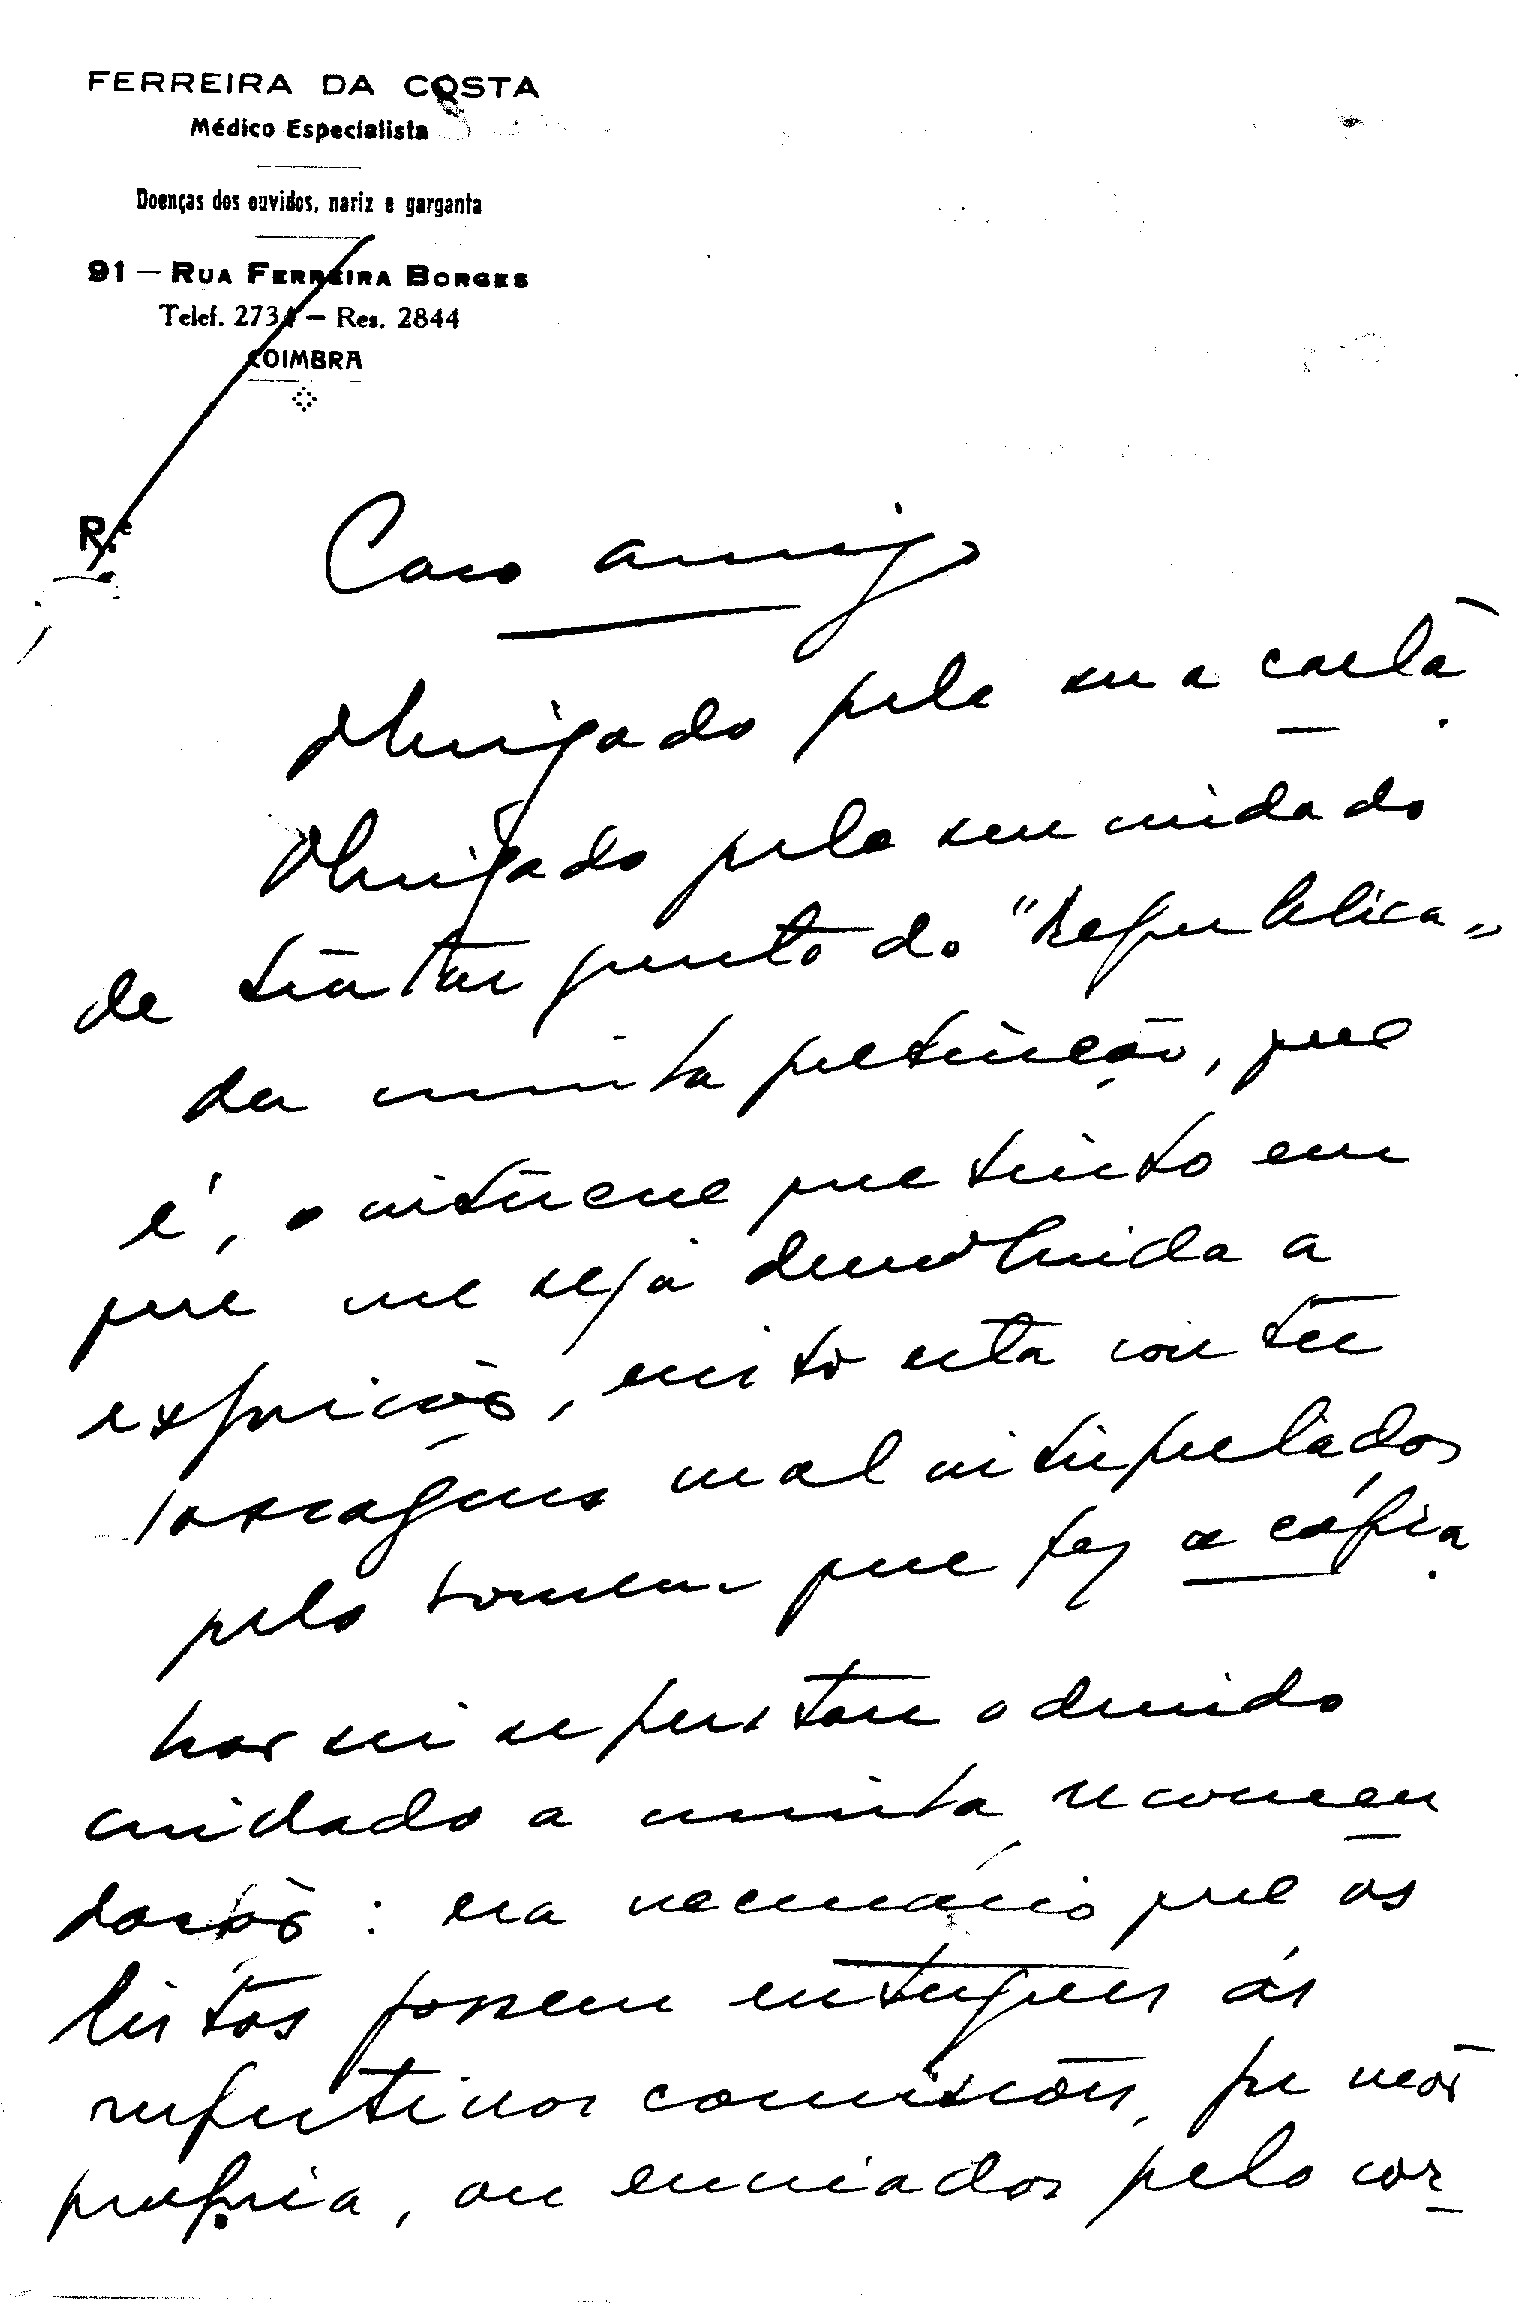 FERREIRA DA COSTA
Médico Especialista
Doenças dos ouvidos, nariz e garganta
91 — RUA FERREIRA BORGES
Telef. 2734 — Res. 2844
COIMBRA
R.e
Caro amigo
Obrigado pela sua carta.
Obrigado pelo seu cuidado
de tratar junto do "Republica"
da minha pretenção, que
é, o interesse que tinha em
que me seja devolvida a
exposição, visto esta conter
passagens mal interpretados
pelo homem que fez a cópia.
Não sei se prestou o devido
cuidado a minha recomen
dação: era necessário que as
listas fossem entregues ás
respectivas comissões, por mão
propria, ou enviados pelo cor_